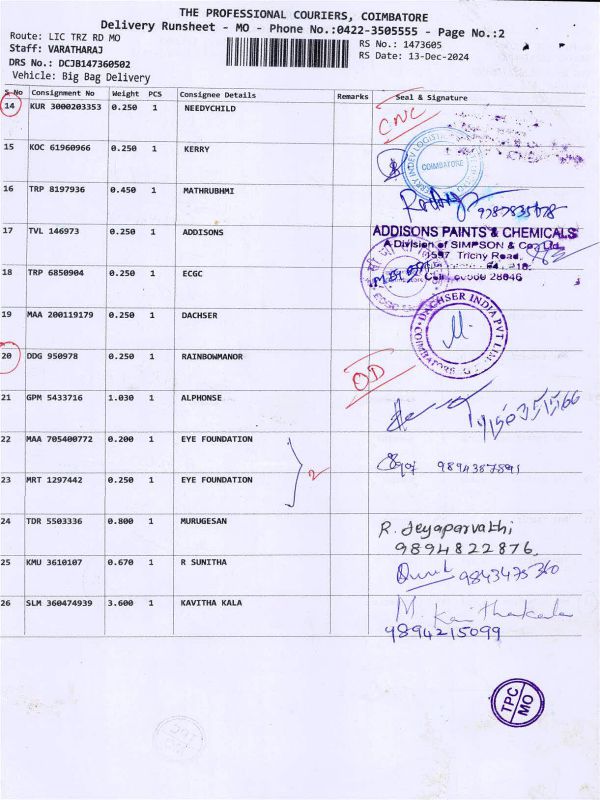 THE PROFESSIONAL COURIERS, COIMBATORE
Delivery Runsheet - MO - Phone No.:0422-3505555 - Page No.:2
Route: LIC TRZ RD MO
RS No.: 1473605
Staff: VARATHARAJ
RS Date: 13-Dec-2024
DRS No.: DCJB147360502
Vehicle: Big Bag Delivery
S No Consignment No Weight PCS Consignee Details Remarks Seal & Signature
14 KUR 3000203353 0.250 1 NEEDYCHILD CNC
15 KOC 61960966 0.250 1 KERRY
COIMBATORE
16 TRP 8197936 0.450 1 MATHRUBHMI
17 TVL 146973 0.250 1 ADDISONS
ADDISONS PAINTS & CHEMICALS
A Division of SIMPSON & Co. Ltd.
Trichy Road,
18 TRP 6850904 0.250 1 ECGC
19 MAA 200119179 0.250 1 DACHSER
DACHSER INDIA PVT LTD
COIMBATORE
20 DDG 950978 0.250 1 RAINBOWMANOR OD
21 GPM 5433716 1.030 1 ALPHONSE
22 MAA 705400772 0.200 1 EYE FOUNDATION
23 MRT 1297442 0.250 1 EYE FOUNDATION 2
24 TDR 5503336 0.800 1 MURUGESAN R. Jeyaparvathi
9894822876
25 KMU 3610107 0.670 1 R SUNITHA 9843475360
26 SLM 360474939 3.600 1 KAVITHA KALA M. Kavithakala
9894215099
TPC
MO